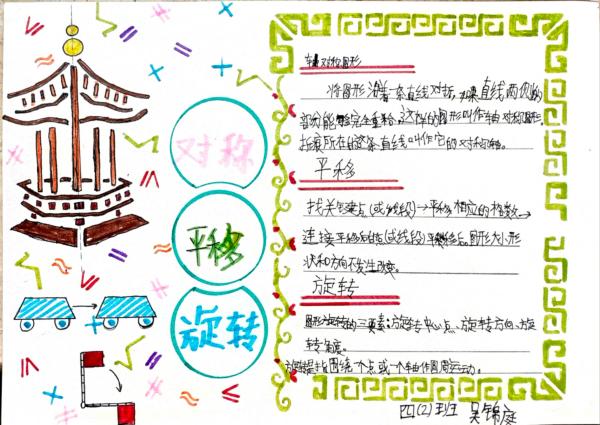 对称
平移
旋转
轴对称图形
将图形沿着一条直线对折，如果直线两侧的
部分能够完全重合，这样的图形叫作轴对称图形，
折痕所在的这条直线叫作它的对称轴。
平移
找关键点（或线段）→平移相应的格数→
连接平移后的点（或线段）图形大小形
状和方向不发生改变。
旋转
图形旋转的三要素：旋转中心点、旋转方向、旋
转角度。
旋转是指围绕一个点或一个轴作圆周运动。
四（2）班 吴锦庭